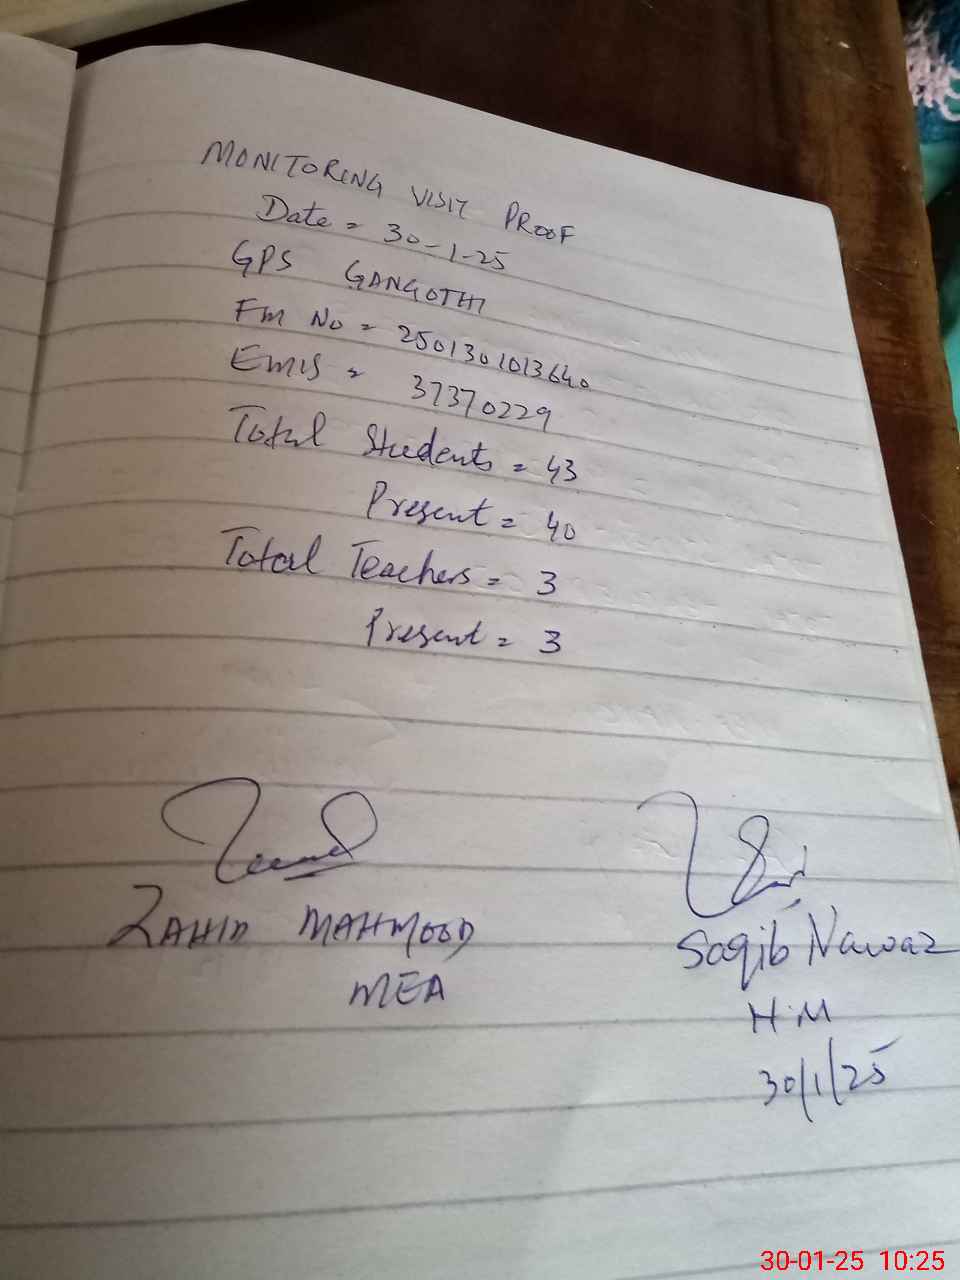 MONITORING VISIT PROOF
Date = 30-1-25
GPS GANGOTHI
Fm No = 2501301013640
Emis = 37370229
Total Students = 43
Present = 40
Total Teachers = 3
Present = 3
ZAHID MAHMOOD
MEA
Saqib Nawaz
H.M
30/1/25
30-01-25 10:25